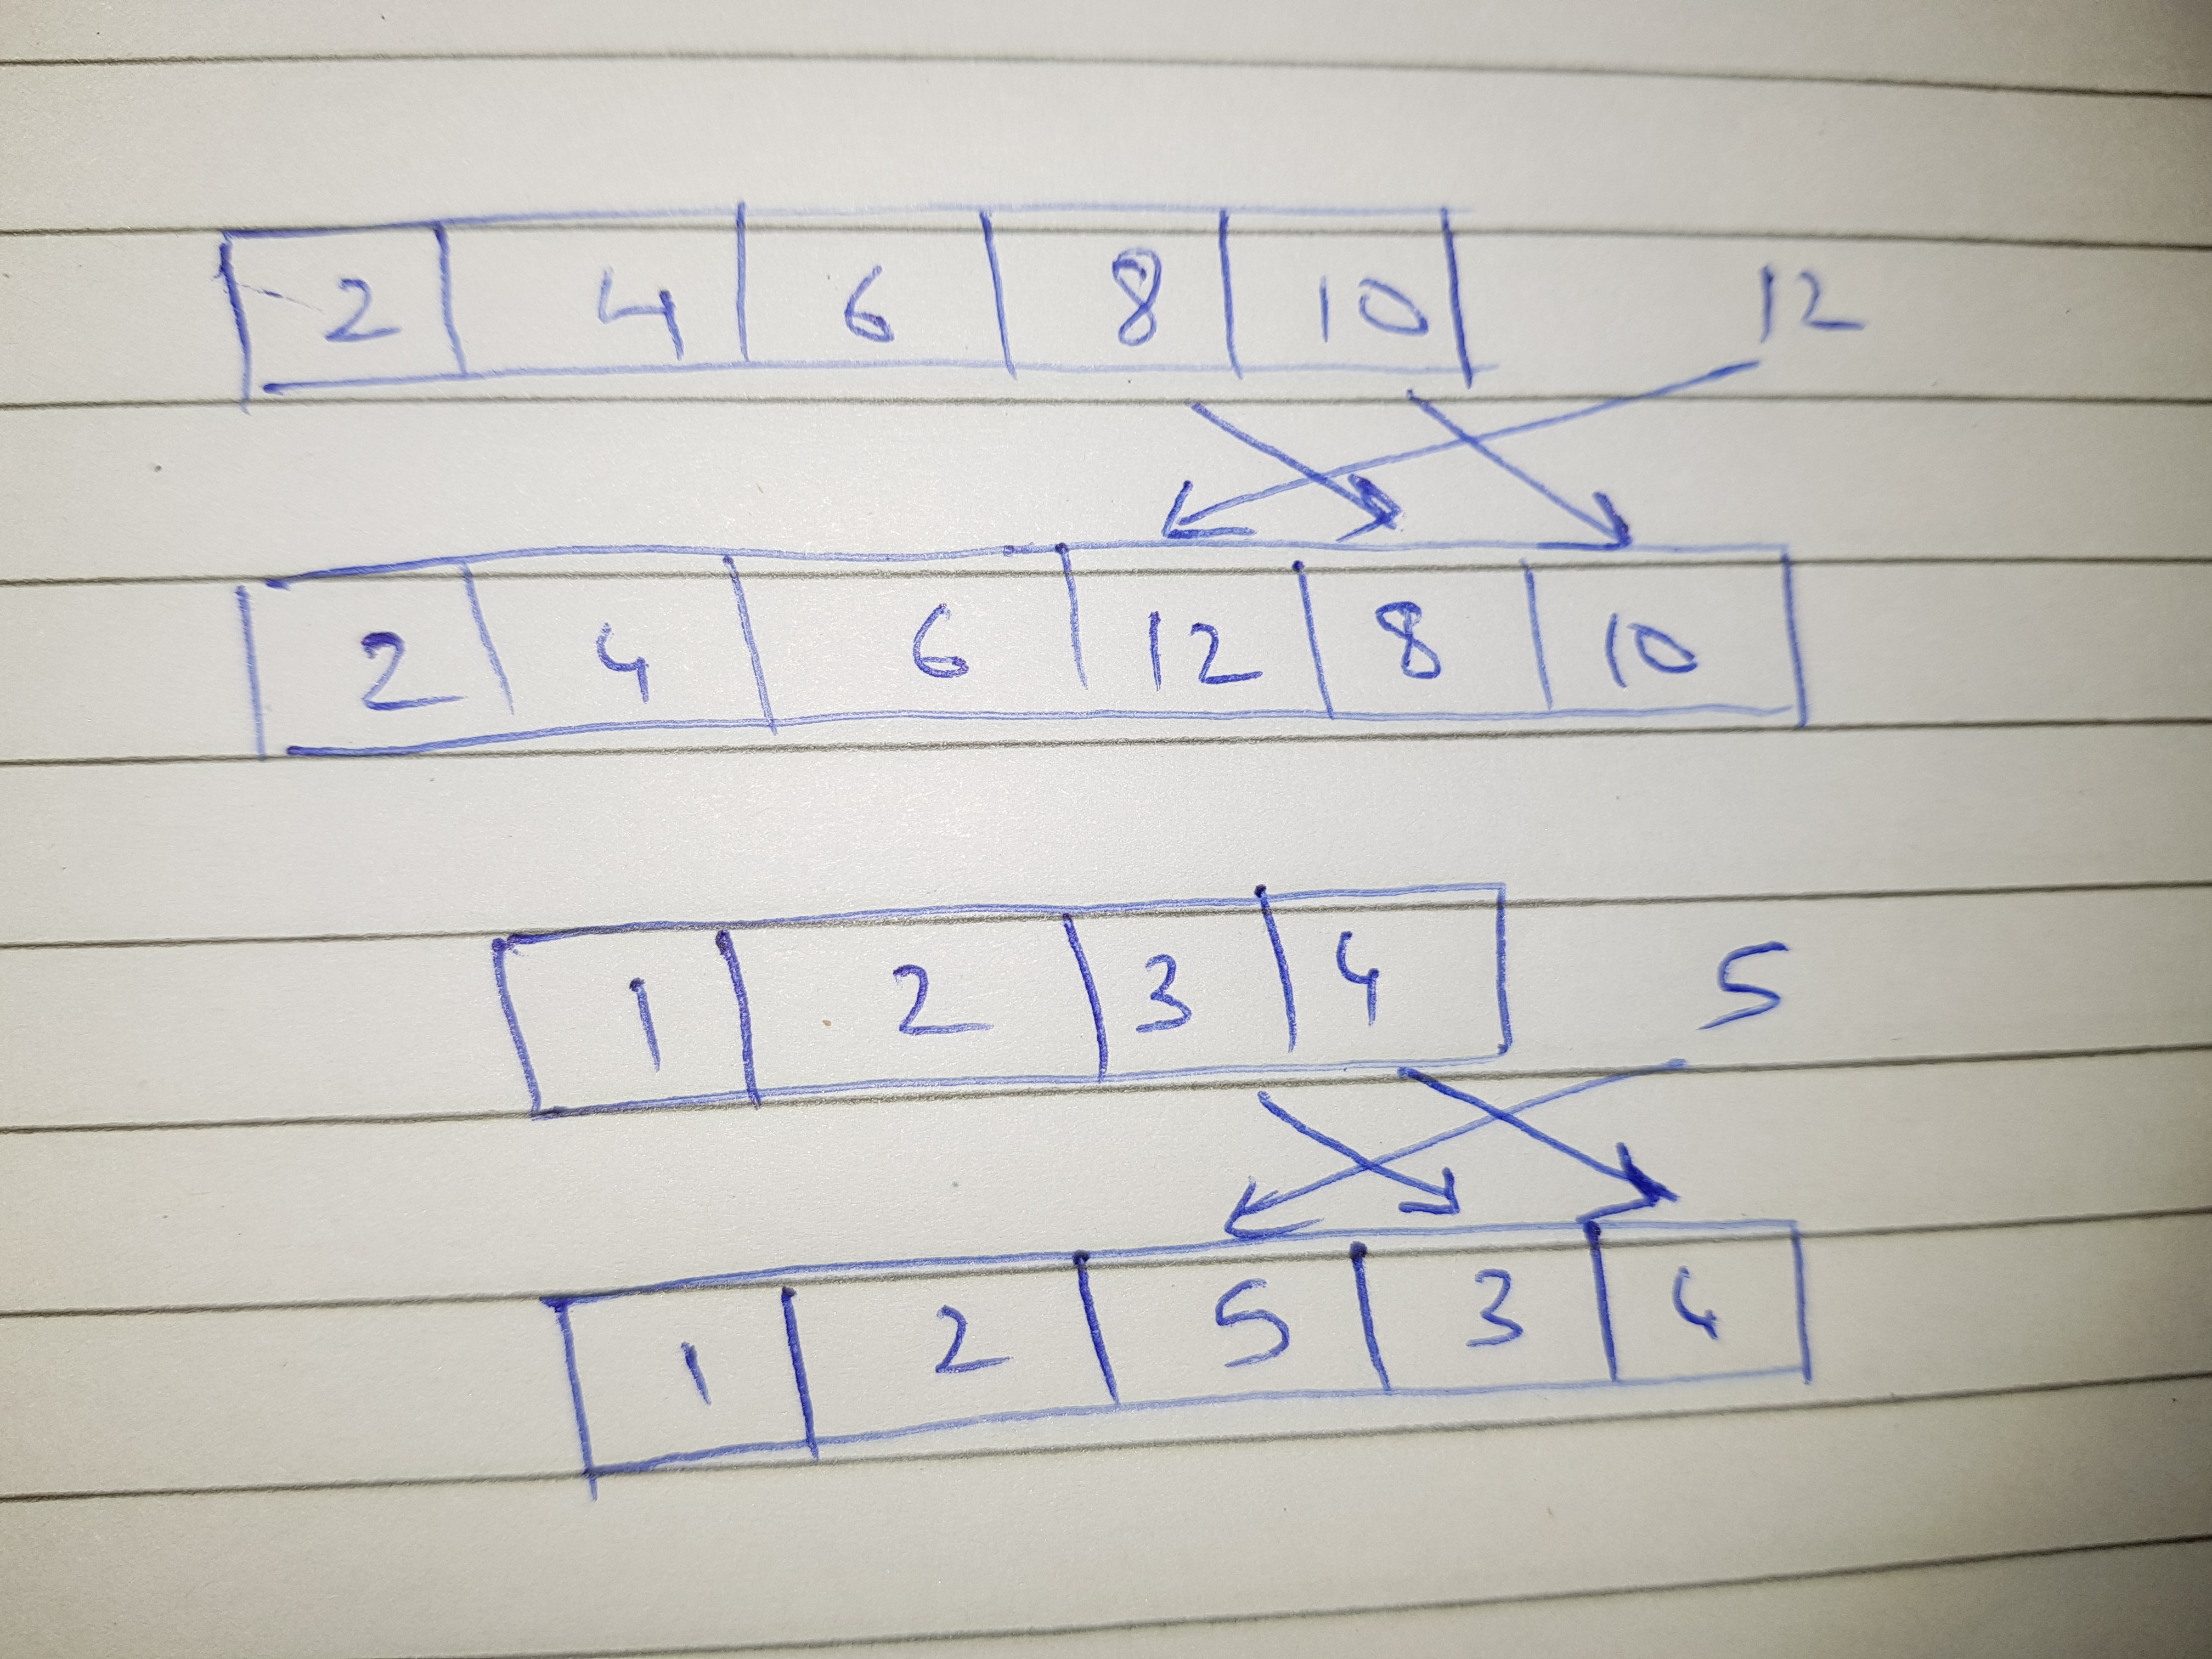 2 4 6 8 10 12
2 4 6 12 8 10
1 2 3 4 5
1 2 5 3 4